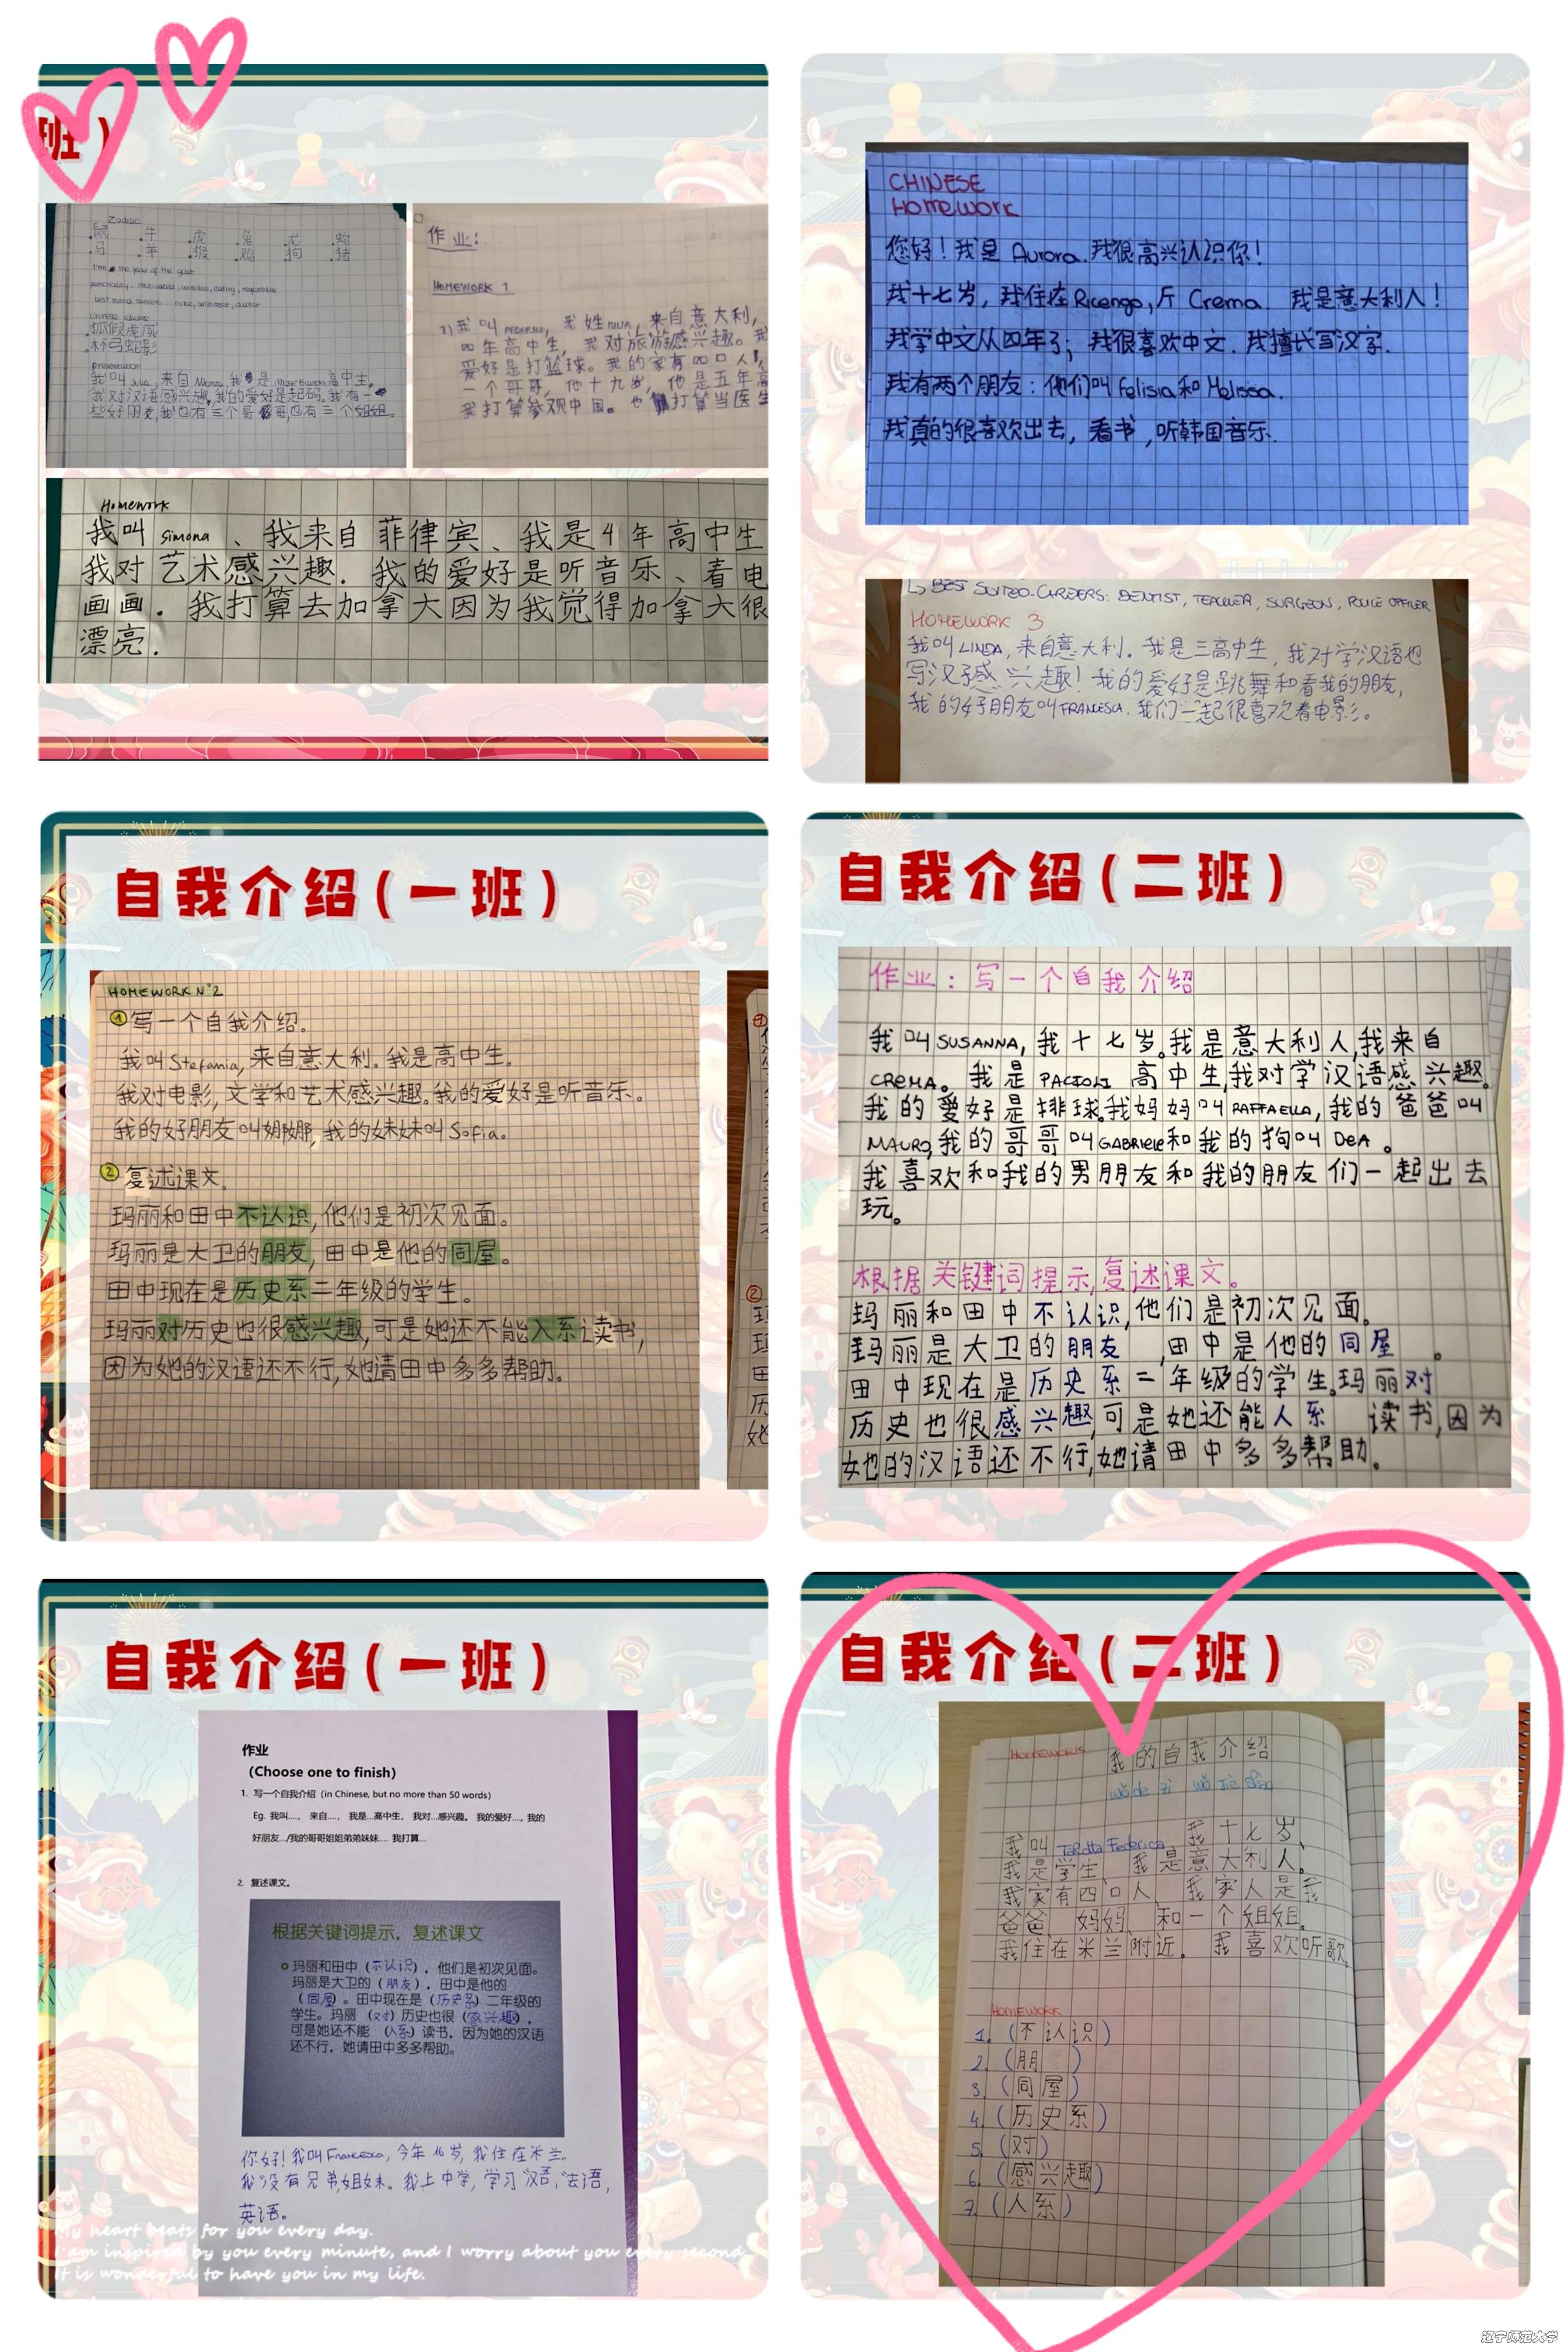 班）
Zodiac
鼠 牛 虎 兔 龙 蛇
马 羊 猴 鸡 狗 猪
I'm the year of the goat
狐假虎威
杯弓蛇影
presentation
高中生。
我对汉语感兴趣。我的爱好是起码。我有一
些好朋友,我也有三个哥哥,也有三个姐姐。
作业:
HOMEWORK 1
1) 我叫 FEDERICO, 我姓 来自意大利,
四年高中生, 我对旅游感兴趣。我
爱好是打篮球。我的家有四口人
一个哥哥, 他十九岁, 他是五年高
我打算参观中国。也打算当医生
Homework
我叫 Simona 、我来自菲律宾、我是4年高中生
我对艺术感兴趣. 我的爱好是听音乐、看电
画画. 我打算去加拿大因为我觉得加拿大很
漂亮.
CHINESE
Homework
您好!我是 Aurora. 我很高兴认识你!
我十七岁, 我住在 Ricengo, 斤 Crema. 我是意大利人!
我学中文从四年了; 我很喜欢中文. 我擅长写汉字.
我有两个朋友: 他们叫 Felisia 和 Melissa.
我真的很喜欢出去, 看书, 听韩国音乐.
↳ BEST SUITED CAREERS: DENTIST, TEACHER, SURGEON, POLICE OFFICER
HOMEWORK 3
我叫 LINDA, 来自意大利。我是三高中生, 我对学汉语也
写汉子感兴趣! 我的爱好是跳舞和看我的朋友,
我的好朋友叫 FRANCESCA. 我们一起很喜欢看电影。
自我介绍(一班)
HOMEWORK N°2
① 写一个自我介绍。
我叫 Stefania, 来自意大利. 我是高中生.
我对电影, 文学和艺术感兴趣. 我的爱好是听音乐。
我的好朋友叫娜娜, 我的妹妹叫 Sofia。
② 复述课文。
玛丽和田中不认识, 他们是初次见面。
玛丽是大卫的朋友, 田中是他的同屋。
田中现在是历史系二年级的学生。
玛丽对历史也很感兴趣, 可是她还不能入系读书,
因为她的汉语还不行, 她请田中多多帮助.
自我介绍(二班)
作业: 写一个自我介绍
我叫 SUSANNA, 我十七岁。我是意大利人, 我来自
CREMA。我是 PACIOLI 高中生, 我对学汉语感兴趣。
我的爱好是排球。我妈妈叫 RAFFAELLA, 我的爸爸叫
MAURO, 我的哥哥叫 GABRIELE 和我的狗叫 DEA 。
我喜欢和我的男朋友和我的朋友们一起出去
玩。
根据关键词提示, 复述课文。
玛丽和田中不认识, 他们是初次见面。
玛丽是大卫的朋友 , 田中是他的同屋 。
田中现在是历史系二年级的学生。玛丽对
历史也很感兴趣, 可是她还能人系 读书, 因为
她的汉语还不行, 她请田中多多帮助。
自我介绍(一班)
作业
(Choose one to finish)
1. 写一个自我介绍 (in Chinese, but no more than 50 words)
Eg. 我叫...., 来自...., 我是...高中生, 我对...感兴趣。 我的爱好..., 我的
好朋友.../我的哥哥姐姐弟弟妹妹.... 我打算...
2. 复述课文。
根据关键词提示, 复述课文
玛丽和田中 (不认识) , 他们是初次见面。
玛丽是大卫的 (朋友) , 田中是他的
(同屋) 。田中现在是 (历史系) 二年级的
学生。玛丽 (对) 历史也很 (感兴趣) ,
可是她还不能 (入系) 读书, 因为她的汉语
还不行, 她请田中多多帮助。
你好! 我叫 Francesca, 今年 16岁, 我住在米兰.
我没有兄弟姐妹. 我上中学, 学习汉语, 法语,
英语。
My heart beats for you every day.
I am inspired by you every minute, and I worry about you every second.
It is wonderful to have you in my life.
自我介绍(二班)
HOMEWORKS 我的自我介绍
wǒ de zì wǒ jiè shào
我叫 Federica 我十七岁、
我是学生 我是意大利人。
我家有四口人 我家人是我
爸爸 妈妈 和一个姐姐.
我住在米兰附近. 我喜欢听歌.
HOMEWORK
1. (不认识)
2. (朋 )
3. (同屋)
4. (历史系)
5. (对)
6. (感兴趣)
7. (人系)
辽宁师范大学